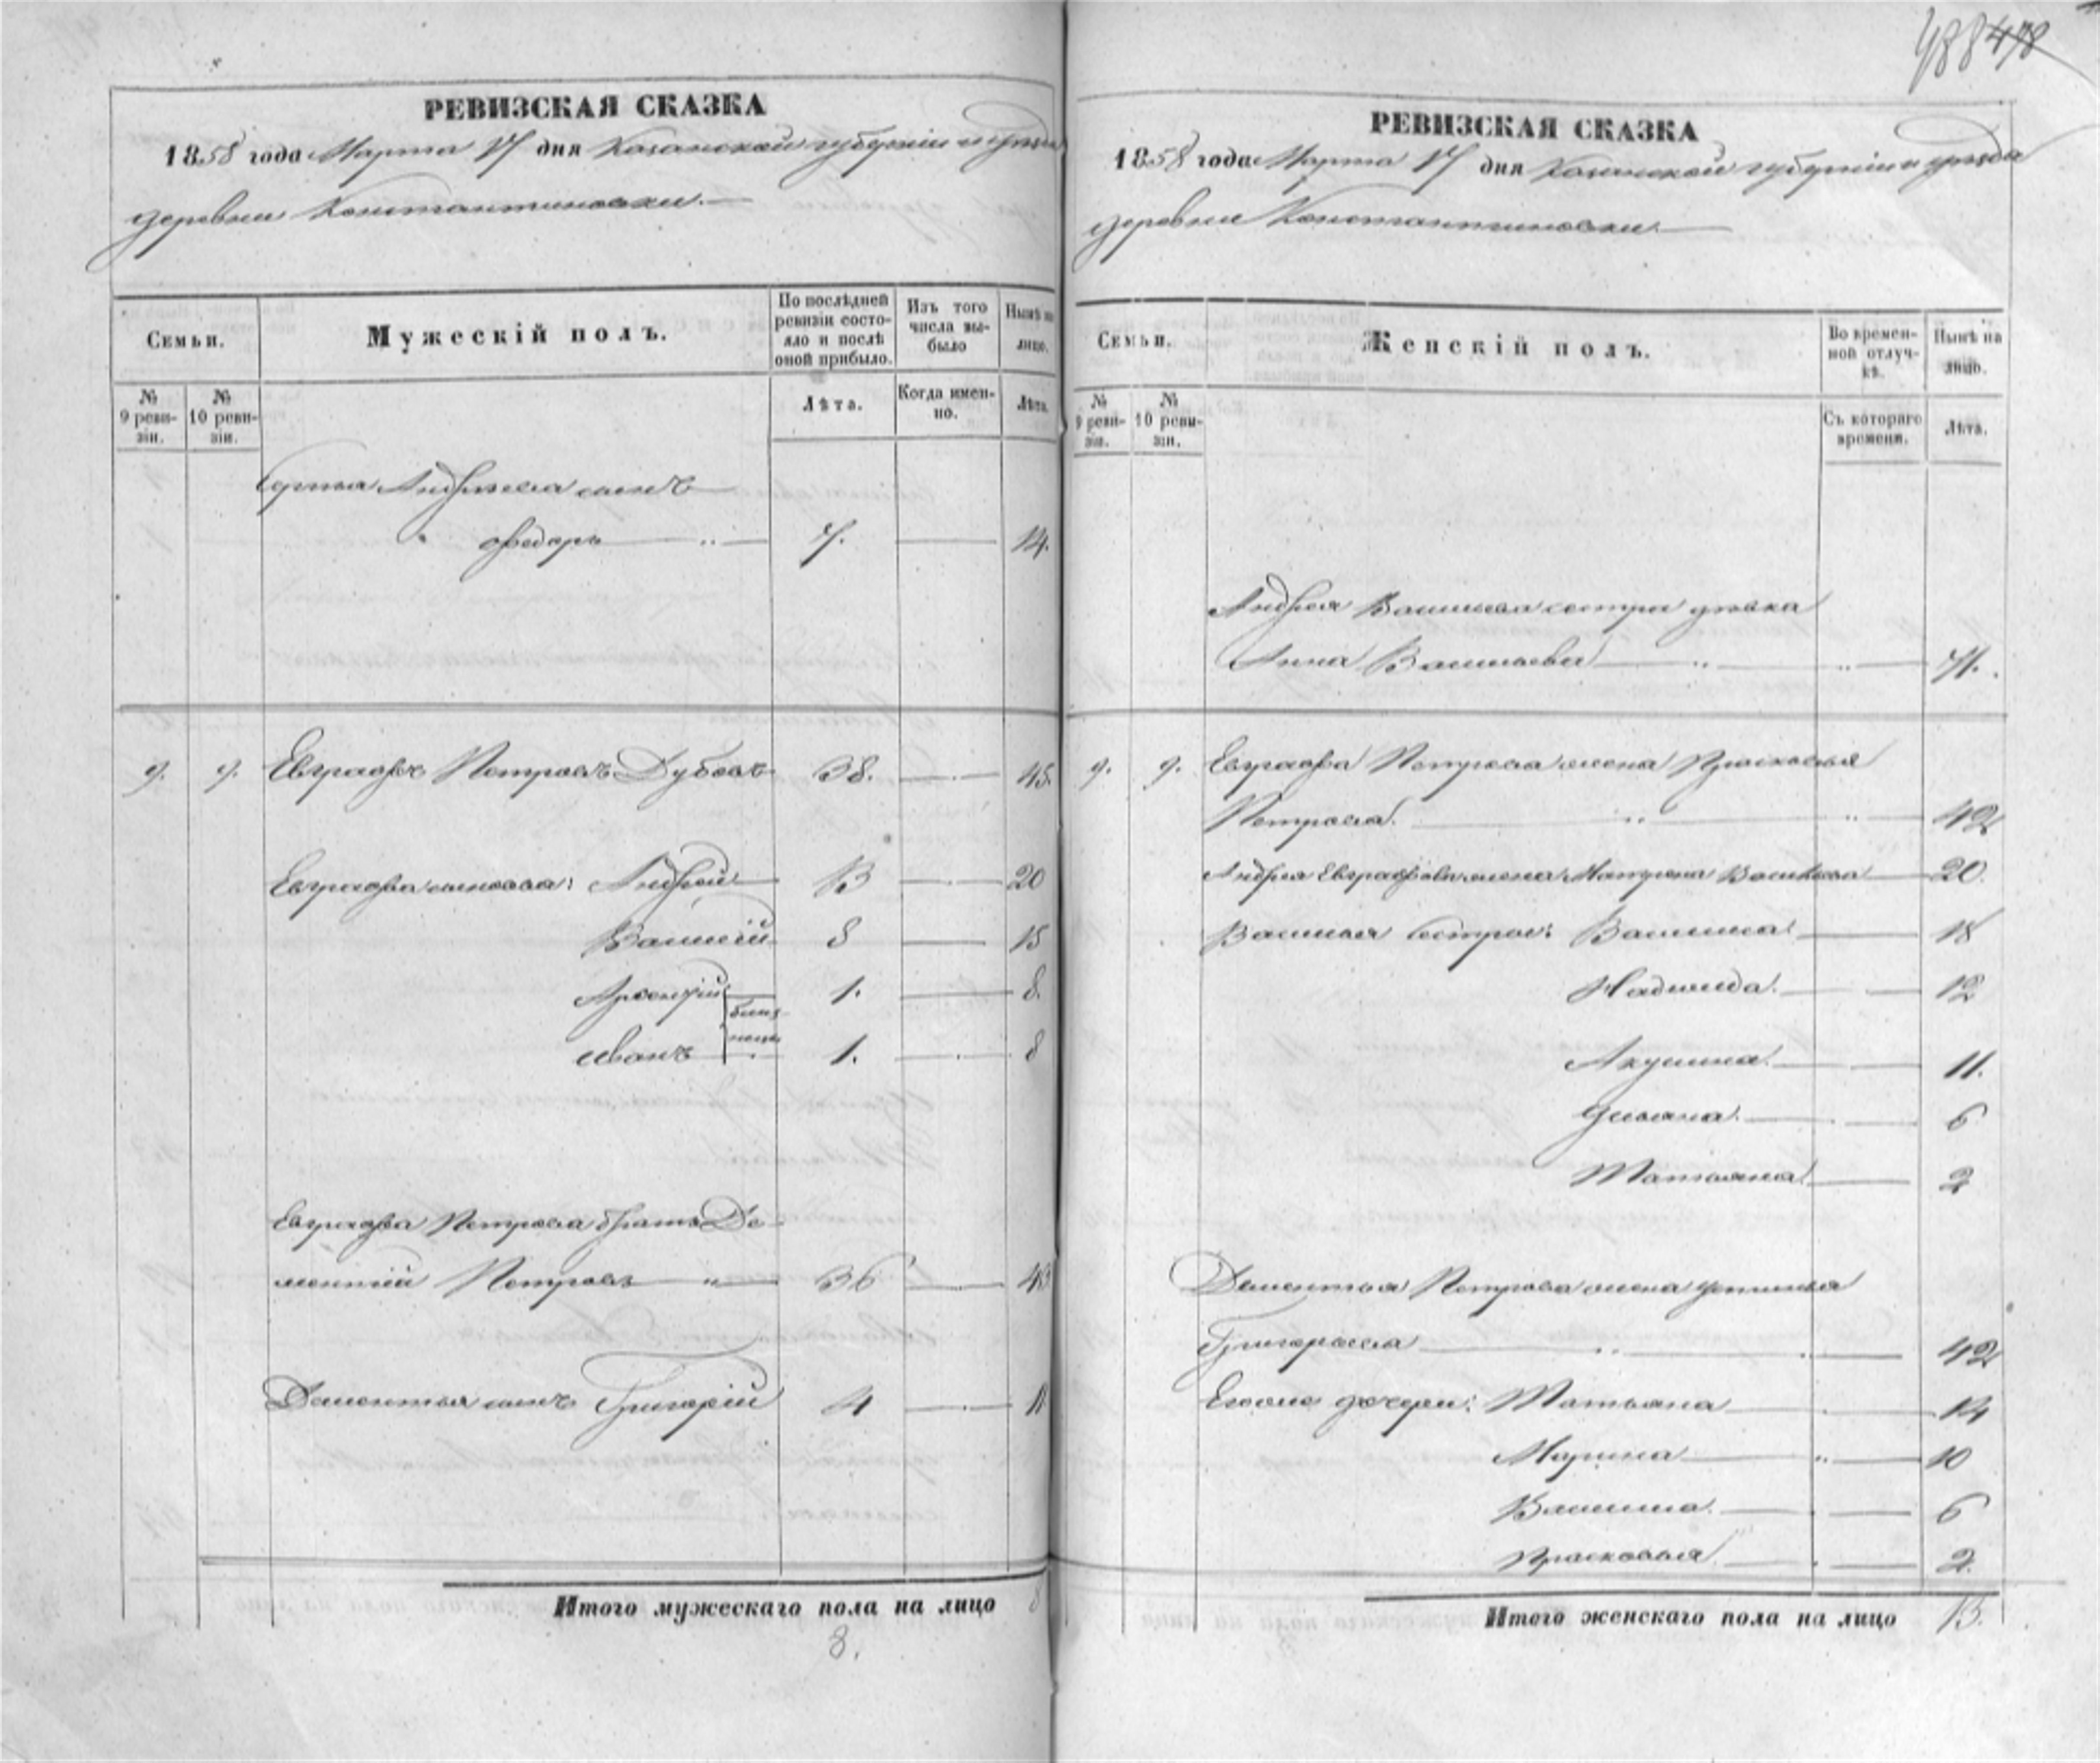 488 478
РЕВИЗСКАЯ СКАЗКА
1858 года Марта 17 дня Казанской губерніи и уезда
деревни Константиновки.
Семьи.
Мужескій полъ.
По послѣдней ревизіи состояло и послѣ оной прибыло.
Изъ того числа выбыло
Нынѣ на лицо.
№ 9 ревизіи.
№ 10 ревизіи.
Лѣта.
Когда именно.
Лѣта.
Андреева сынъ
Федоръ 7. 14.
9. 9. Евграфъ Петровъ Дубовъ 38. 45.
Евграфа сыновья: Андрей 13 20
Василій 8 15
Арсентій 1. 8.
близнецы
Иванъ 1. 8
Евграфа Петрова братъ Де-
ментій Петровъ 36 43
Дементья сынъ Григорій 4 11
Итого мужескаго пола на лицо 8
8.
РЕВИЗСКАЯ СКАЗКА
1858 года Марта 17 дня Казанской губерніи и уезда
деревни Константиновки.
Семьи.
Женскій полъ.
Во временной отлучкѣ.
Нынѣ на лицо.
№ 9 ревизіи.
№ 10 ревизіи.
Съ котораго времени.
Лѣта.
Андрея Васильева сестра дѣвка
Анна Васильева 71.
9. 9. Евграфа Петрова жена Прасковья
Петрова. 42
Андрея Евграфова жена Матрена Васильева 20.
Василья сестры: Василиса 18
Надежда. 12
Акулина. 11.
Ульяна. 6
Татьяна 2
Дементья Петрова жена Устинья
Григорьева 42
Егоже дочери: Татьяна 14
Марина 10
Василиса. 6
Прасковья 2.
Итого женскаго пола на лицо 13.